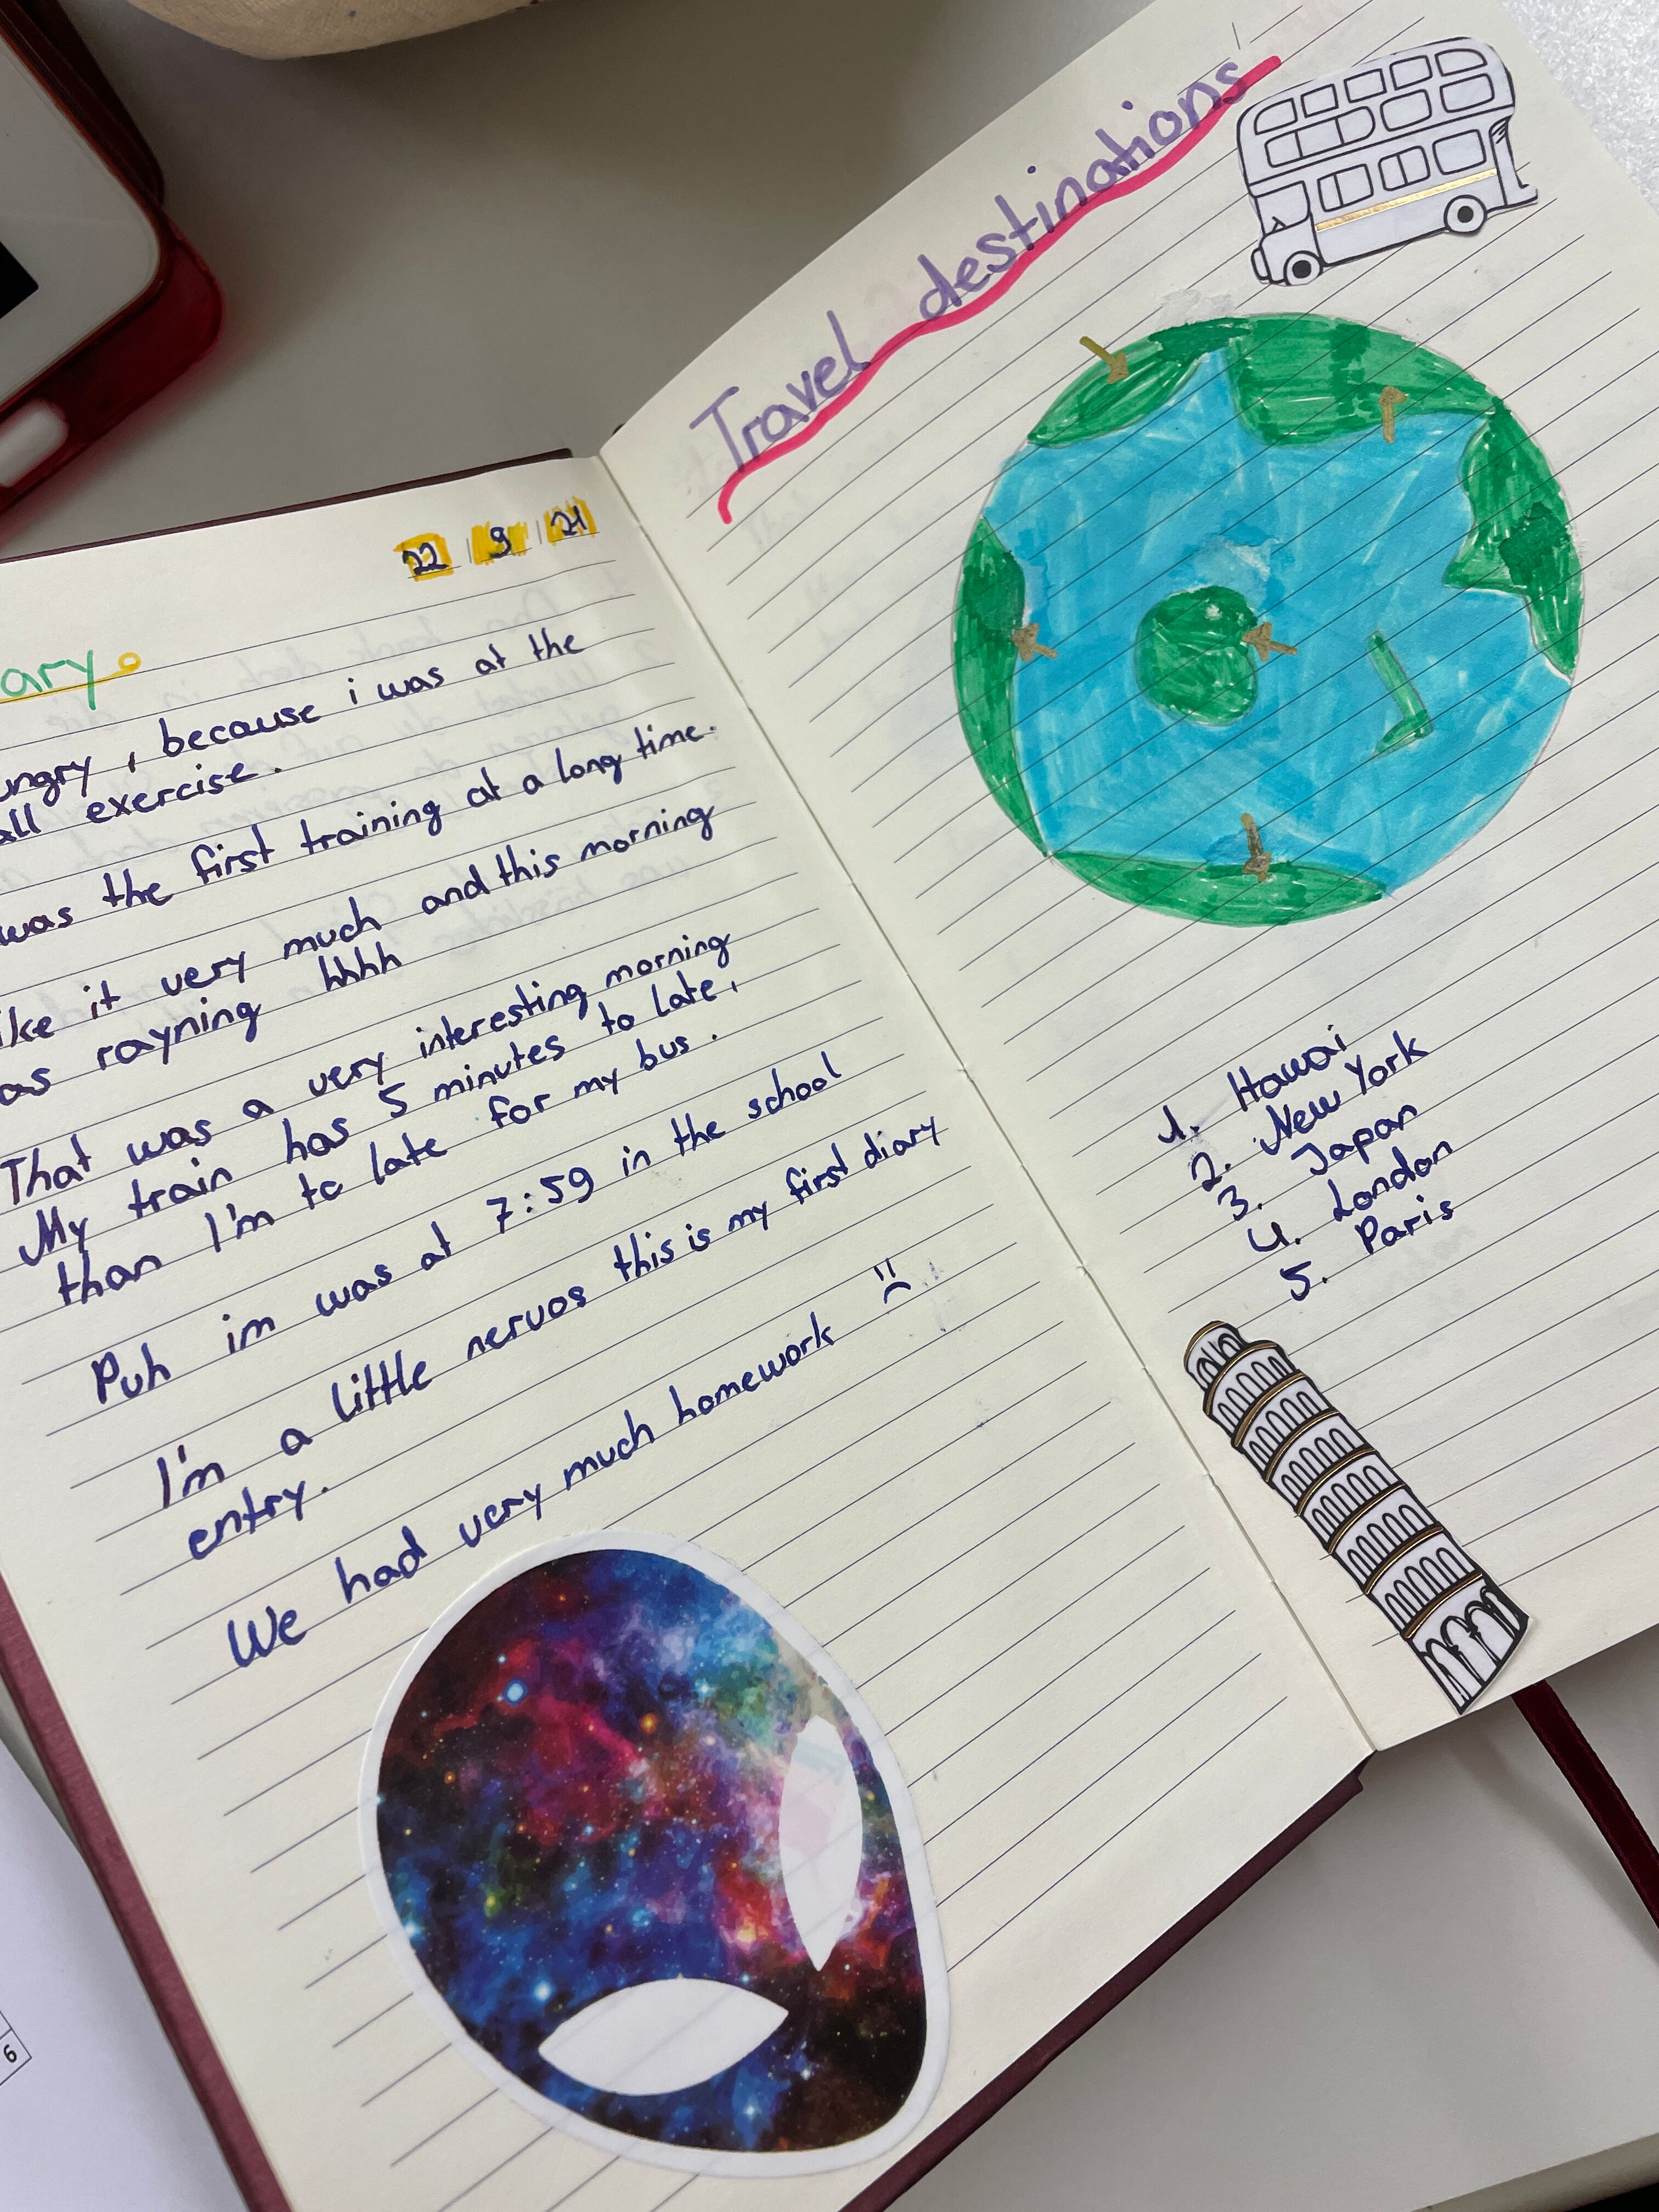 22 / 9 / 21
ary
ungry, because i was at the
all exercise.
was the first training at a long time.
ike it very much and this morning
as rayning hhhh
That was a very interesting morning
My train has 5 minutes to late,
than I'm to late for my bus.
Puh im was at 7:59 in the school
I'm a little nervos this is my first diary
entry.
We had very much homework
Travel destinations
1. Hawai
2. New York
3. Japan
4. London
5. Paris
6